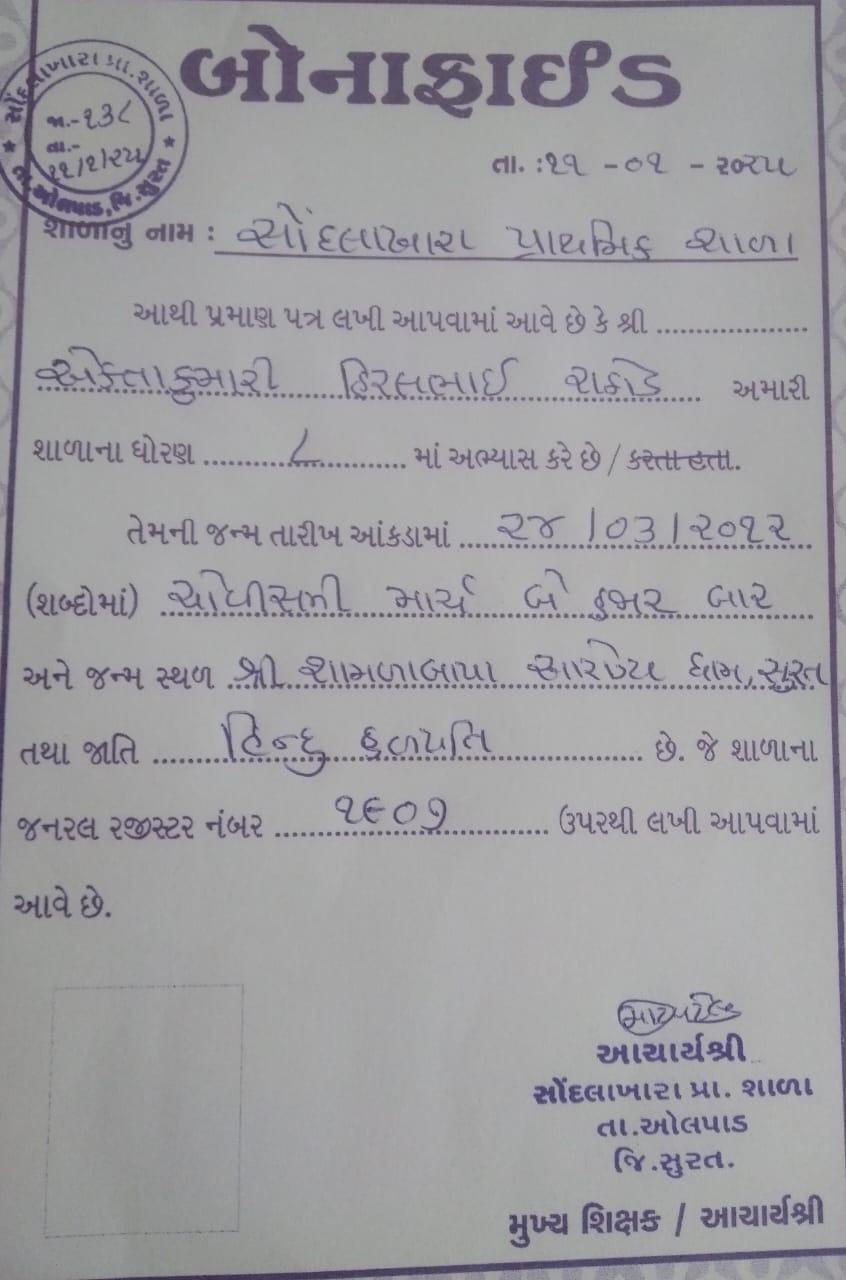 બોનાફાઈડ
સોંદલાખારા પ્રા. શાળા
જા.- ૧૩૮
તા.-
૧૧/૧/૨૫
તા. ઓલપાડ, જિ. સુરત
તા. : ૧૧ - ૦૧ - ૨૦૨૫
શાળાનું નામ : સોંદલાખારા પ્રાથમિક શાળા
આથી પ્રમાણ પત્ર લખી આપવામાં આવે છે કે શ્રી ....................
એકતાકુમારી હિરલભાઈ રાઠોડ અમારી
શાળાના ધોરણ ૮ માં અભ્યાસ કરે છે / કરતા હતા.
તેમની જન્મ તારીખ આંકડામાં ૨૪ / ૦૩ / ૨૦૧૨
(શબ્દોમાં) ચોવીસમી માર્ચ બે હજાર બાર
અને જન્મ સ્થળ શ્રી શામળાબાપા આરોગ્ય ધામ, સુરત
તથા જાતિ હિન્દુ હળપતિ છે. જે શાળાના
જનરલ રજીસ્ટર નંબર ૧૯૦૭ ઉપરથી લખી આપવામાં
આવે છે.
આચાર્યશ્રી
સોંદલાખારા પ્રા. શાળા
તા.ઓલપાડ
જિ.સુરત.
મુખ્ય શિક્ષક / આચાર્યશ્રી